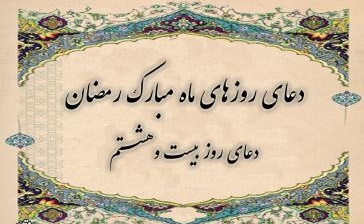 دعای روزهای ماه مبارک رمضان
دعای روز بیست و هشتم